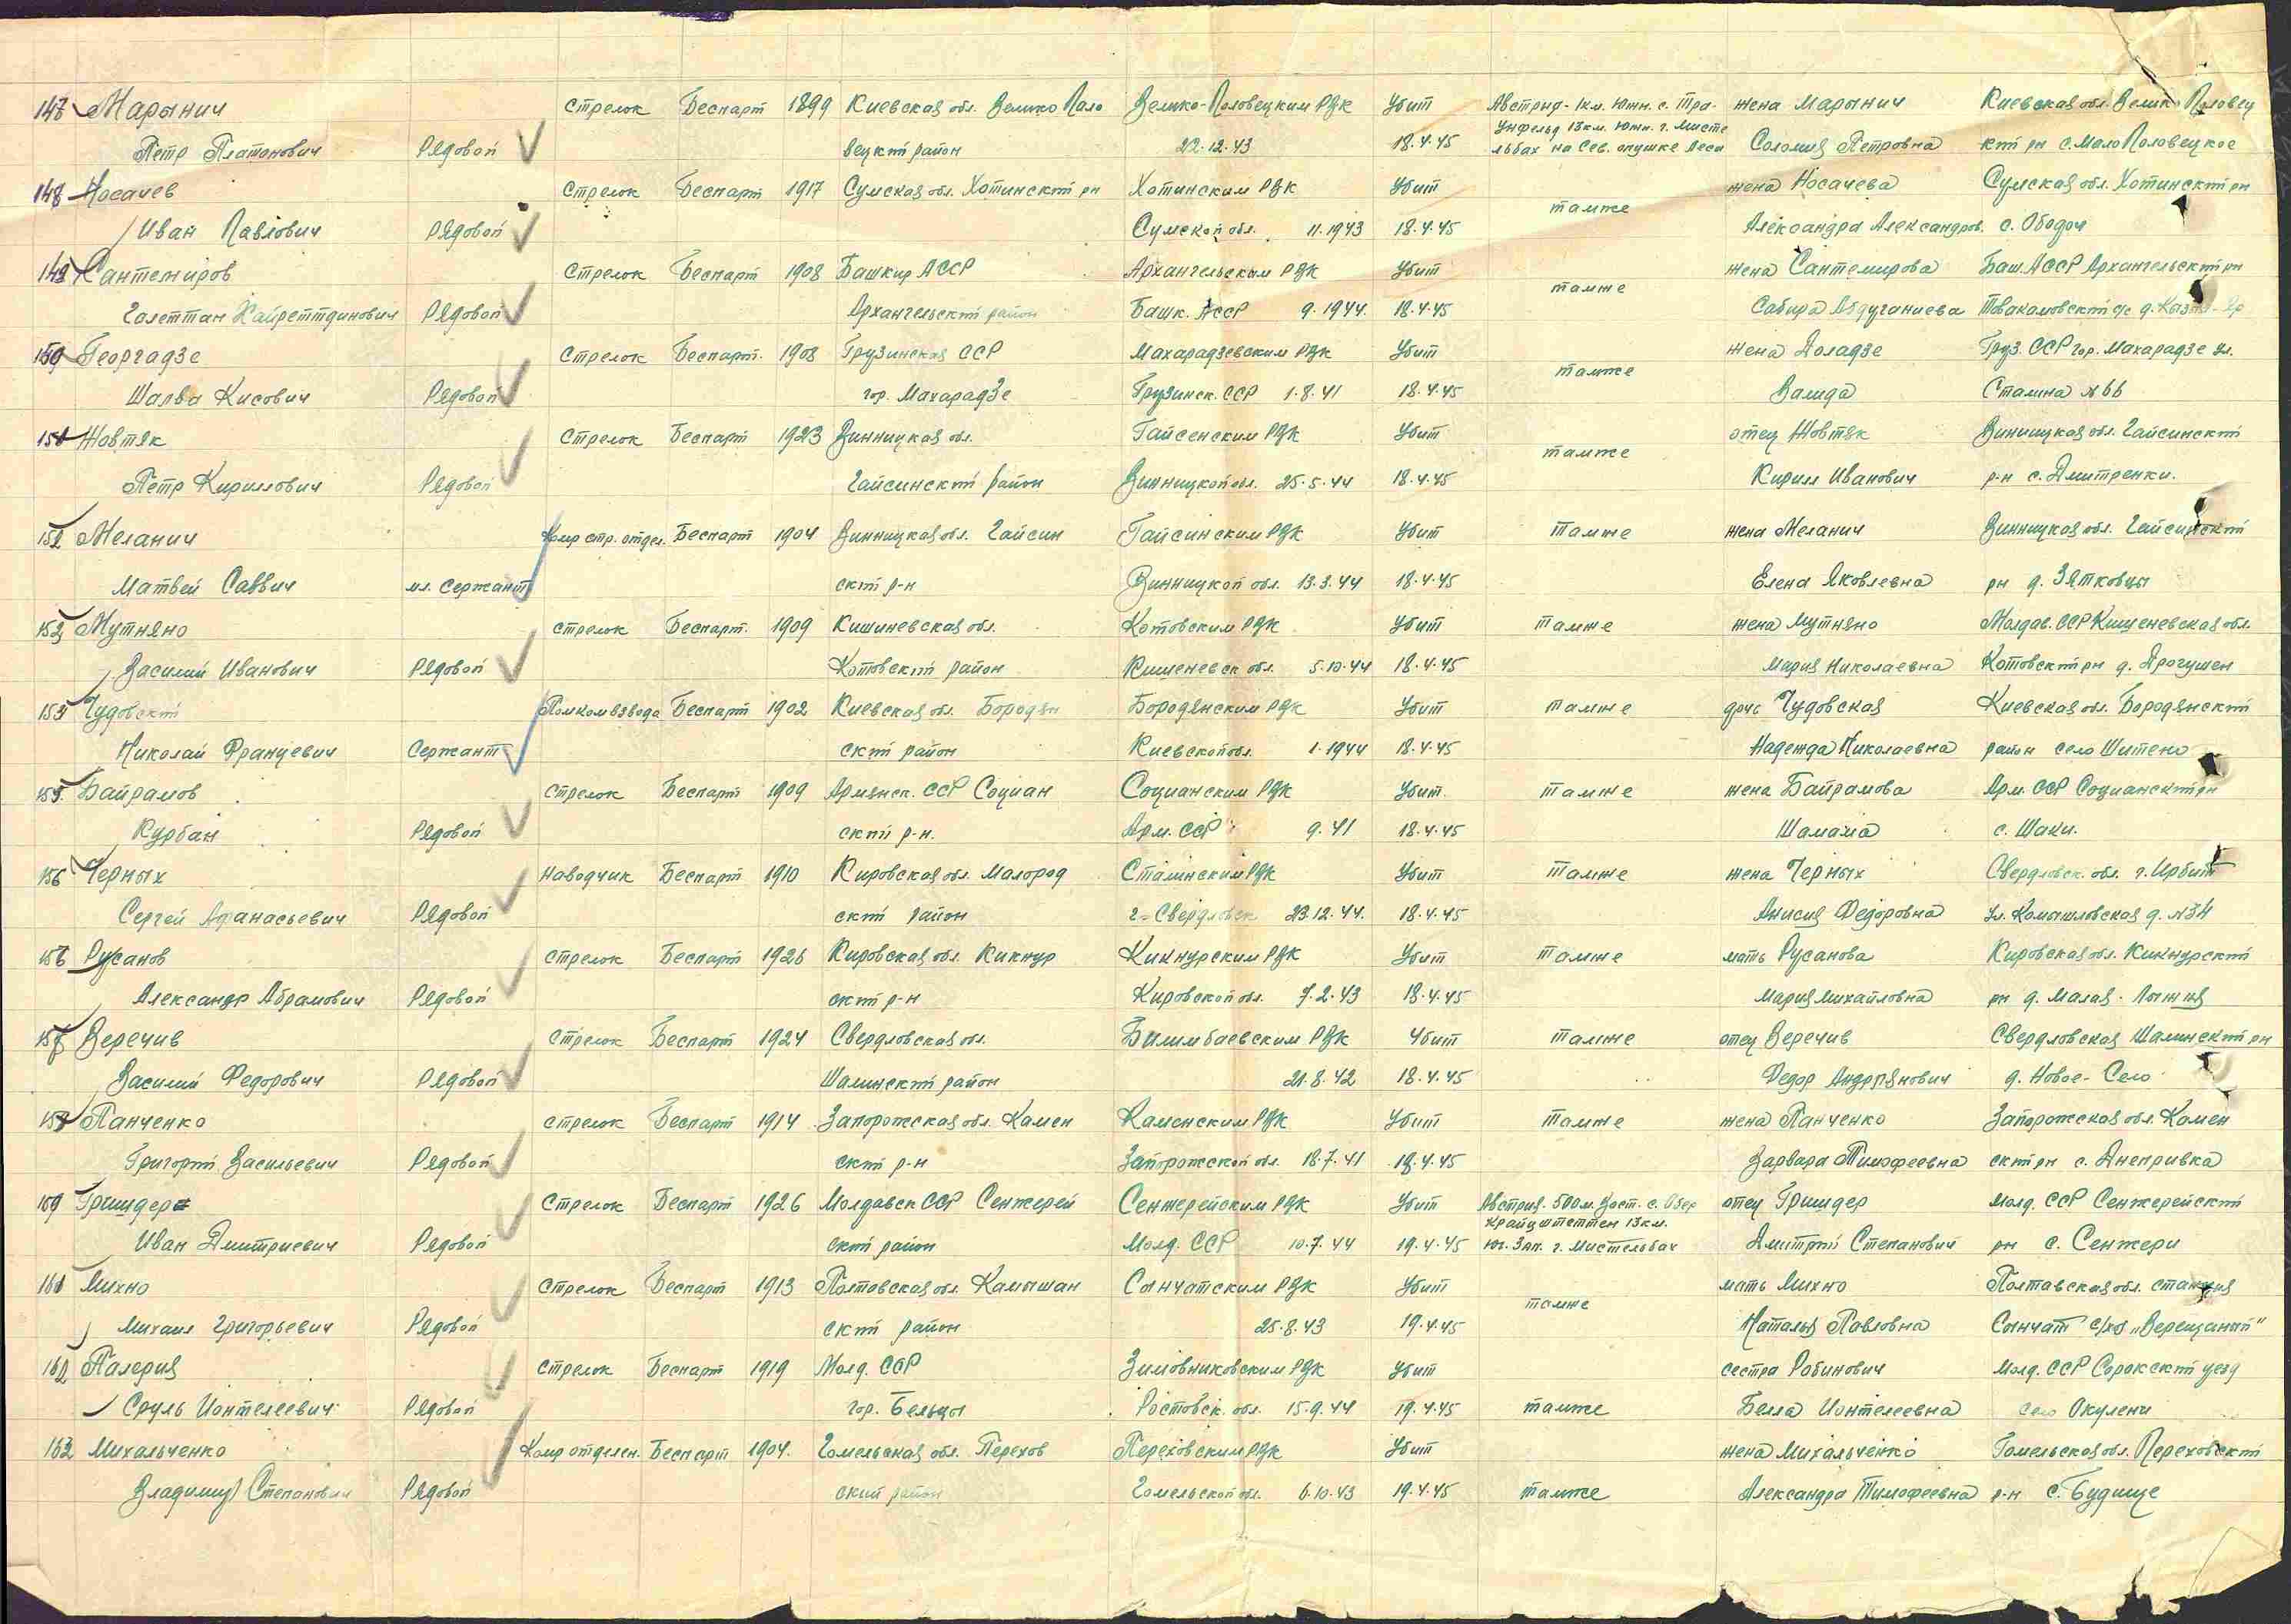 147 Марынич Стрелок Беспарт 1899 Киевская обл. Велико Поло Велико-Половецким РВК Убит Австрия-1км. Южн. с. Тра- жена Марынич Киевская обл. Велико Половец
Петр Платонович Рядовой вецкий район 22.12.43 18.4.45 унфельд 13км. Южн. г. Мисте льбах на Сев. опушке леса Соломия Петровна кий рн с. МалоПоловецкое
148 Носачев Стрелок Беспарт 1917 Сумская обл. Хотинский рн Хотинским РВК Убит тамже жена Носачева Сумская обл. Хотинский рн
Иван Павлович Рядовой Сумской обл. 11.1943 18.4.45 Александра Александров. с. Ободы
149 Сантемиров Стрелок Беспарт 1908 Башкир АССР Архангельским РВК Убит тамже жена Сантемирова Баш. АССР Архангельский рн
Голеттан Хайреттдинович Рядовой Архангельский район Башк. АССР 9.1944. 18.4.45 Сабира Абдуганиева
150 Георгадзе Стрелок Беспарт. 1908 Грузинская ССР Махарадзевским РВК Убит тамже жена Доладзе Груз. ССР гор. Махарадзе ул.
Шалва Кисович Рядовой гор. Махарадзе Грузинск. ССР 1.8.41 18.4.45 Валида Сталина № 66
151 Жовтяк Стрелок Беспарт 1923 Винницкая обл. Гайсенским РВК Убит тамже отец Жовтяк Винницкая обл. Гайсинский
Петр Кириллович Рядовой Гайсинский район Винницкой обл. 25.5.44 18.4.45 Кирилл Иванович р-н с. Дмитренки.
152 Меланич Комр стр. отдел. Беспарт 1904 Винницкая обл. Гайсин Гайсинским РВК Убит тамже жена Меланич Винницкая обл. Гайсинский
Матвей Саввич мл. Сержант ский р-н Винницкой обл. 13.3.44 18.4.45 Елена Яковлевна рн д. Зятковцы
153 Мутняно стрелок Беспарт. 1909 Кишиневская обл. Котовским РВК Убит тамже жена Мутняно Молдав. ССР Кишеневская обл.
Василий Иванович Рядовой Котовский район Кишеневск обл. 5.10.44 18.4.45 Мария Николаевна Котовский рн д. Дрогушен
154 Чудовский Помкомвзвода Беспарт 1902 Киевская обл. Бородян Бородянским РВК Убит тамже дочь Чудовская Киевская обл. Бородянский
Николай Францевич Сержант ский район Киевской обл. 1.1944 18.4.45 Надежда Николаевна район село Шитено
155. Байрамов Стрелок Беспарт 1909 Армянск. ССР Социан Социанским РВК Убит. тамже жена Байрамова Арм. ССР Социанский рн
Курбан Рядовой ский р-н. Арм. ССР 9.41 18.4.45 Шамама с. Шаки.
156 Черных Наводчик Беспарт 1910 Кировская обл. Малород Сталинским РВК Убит тамже жена Черных Свердловск. обл. г. Ирбит
Сергей Афанасьевич Рядовой ский район г-Свердловск 23.12.44. 18.4.45 Анисия Федоровна ул. Камашловская д. №34
156 Русанов стрелок Беспарт 1926 Кировская обл. Кикнур Кикнурским РВК Убит тамже мать Русанова Кировская обл. Кикнурский
Александр Абрамович Рядовой ский р-н Кировской обл. 7.2.43 18.4.45 Мария Михайловна рн д. Малая-Лыжня
157 Веречив Стрелок Беспарт 1924 Свердловская обл. Билимбаевским РВК Убит тамже отец Веречив Свердловская Шалинский рн
Василий Федорович Рядовой Шалинский район 21.8.42 18.4.45 Федор Андриянович д. Новое-Село
158 Панченко стрелок Беспарт 1914 Запорожская обл. Камен Каменским РВК Убит тамже жена Панченко Запорожская обл. Камен
Григорий Васильевич Рядовой ский р-н Запорожской обл. 18.7.41 18.4.45 Варвара Тимофеевна ский рн с. Днепривка
159 Гришдер Стрелок Беспарт 1926 Молдавск ССР Сенжерей Сенжерейским РВК Убит Австрия. 500м. Вост. с. Обер отец Гришдер Молд. ССР Сенжерейский
Иван Дмитриевич Рядовой ский район Молд. ССР 10.7.44 19.4.45 крайцштеттен 13км. Юг. Зап. г. Мистельбах Дмитрий Степанович рн с. Сенжери
161 Михно Стрелок Беспарт 1913 Полтавская обл. Камышан Сынчатским РВК Убит тамже мать Михно Полтавская обл. станция
Михаил Григорьевич Рядовой ский район 25.8.43 19.4.45 Наталья Павловна Сынчат с/хоз „Верещаный"
162 Палерия Стрелок Беспарт 1919 Молд. ССР Зимовниковским РВК Убит сестра Робинович Молд. ССР Сорокский уезд
Сруль Ионтелеевич Рядовой гор. Бельцы Ростовск. обл. 15.9.44 19.4.45 тамже Белла Ионтелеевна село Окулени
163 Михальченко Комр отделен. Беспарт 1904. Гомельская обл. Терехов Тереховским РВК Убит жена Михальченко Гомельская обл. Тереховский
Владимир Степанович Рядовой ский район Гомельской обл. 6.10.43 19.4.45 тамже Александра Тимофеевна р-н с. Будище